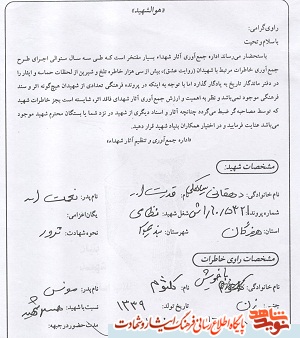 «هوالشهید»
راوی گرامی:
با سلام و تحیت
باستحضار می رساند اداره جمع آوری آثار شهداء بسیار مفتخر است که طی سه سال ستوالی اجرای طرح
جمع آوری خاطرات مرتبط با شهیدان (روایت عشق)، بیش از سی هزار خاطره تلخ و شیرین از لحظات حماسه و ایثار را
در دفتر ماندگار تاریخ به یادگار گذارد اما با توجه به اینکه در پرونده فرهنگی تعدادی از شهیدان هیچ گونه اثر و سند
فرهنگی موجود نمی باشد و نظر به اهمیت و ارزش آثار شهدای فاقد اثر، شایسته است بجز خاطرات شهید
که توسط مصاحبه گر ضبط می گردد چنانچه آثار و اسناد دیگری از شهید در نزد شما یا بستگان محترم شهید موجود
می باشد عنایت فرمایید و در اختیار همکاران بنیاد شهید قرار دهید.
«اداره جمع آوری و تنظیم آثار شهداء»
مشخصات شهید:
نام خانوادگی: دهقانی نام: قدرت اله نام پدر: نعمت اله
شماره پرونده: شغل شهید: نظامی یگان اعزامی:
استان: هرمزگان شهرستان: نحوه شهادت: ترور
مشخصات راوی خاطرات
نام خانوادگی: نام: کلثوم نام پدر:
زن تاریخ تولد: ۱۳۳۹ نسبت با شهید: همسر شهید
مدت حضور در جبهه:
نوید شاهد
پایگاه اطلاع رسانی فرهنگ ایثار و شهادت